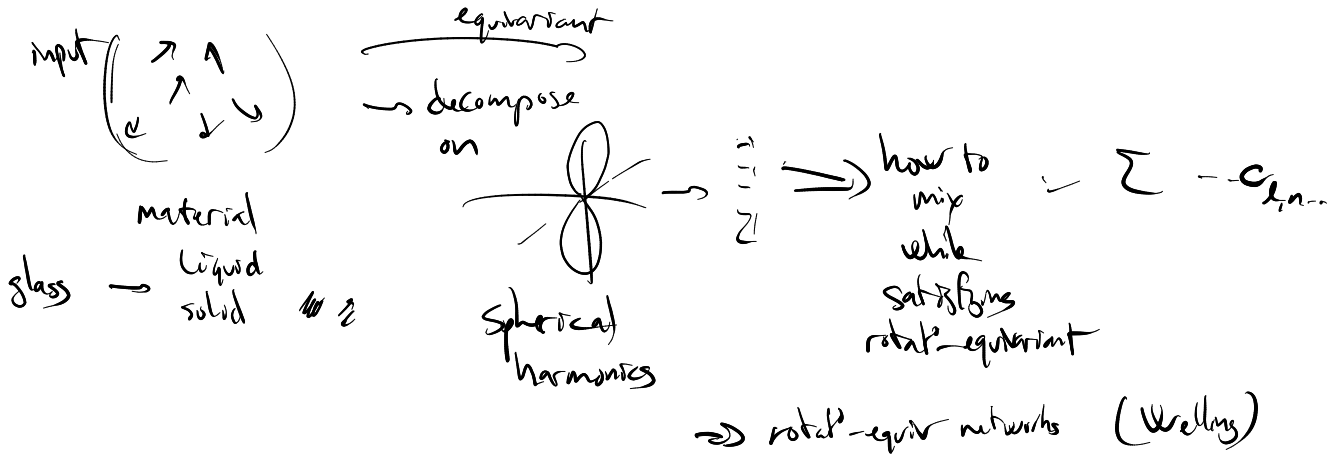 input
equivariant
→ decompose
on
material
liquid
glass →
solid
spherical
harmonics
how to
mix
while
satisfying
rotat°-equivariant
Σ --c l,n..
⇒ rotat°-equiv networks (Welling)